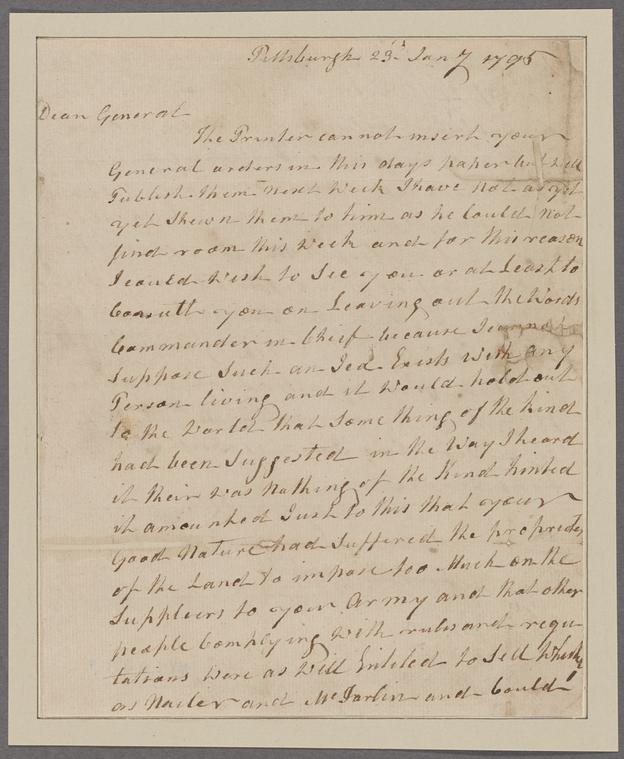 Pittsburgh 23d Jany 1795
Dear General
The Printer cannot insert your
General orders in this days paper but will
Publish them next week I have not as yet
yet Shewn them to him as he Could not
find room this week and for this reason
I could wish to See you or at Least to
Consult you on Leaving out the Words
Commander in Chief because I cannot
Suppose Such an Idea Exists with any
Person living and it would hold out
to the World that Some thing of the kind
had been Suggested in the Way I heard
it their was Nothing of the Kind hinted
it amounted Just to this that your
Good Nature had Suffered the propriety
of the Land to impose too Much on the
Suppliers to your Army and that other
people Complying with rules and regu
tations were as well Entitled to Sell Whisky
as Nailer and McFarlin and Could